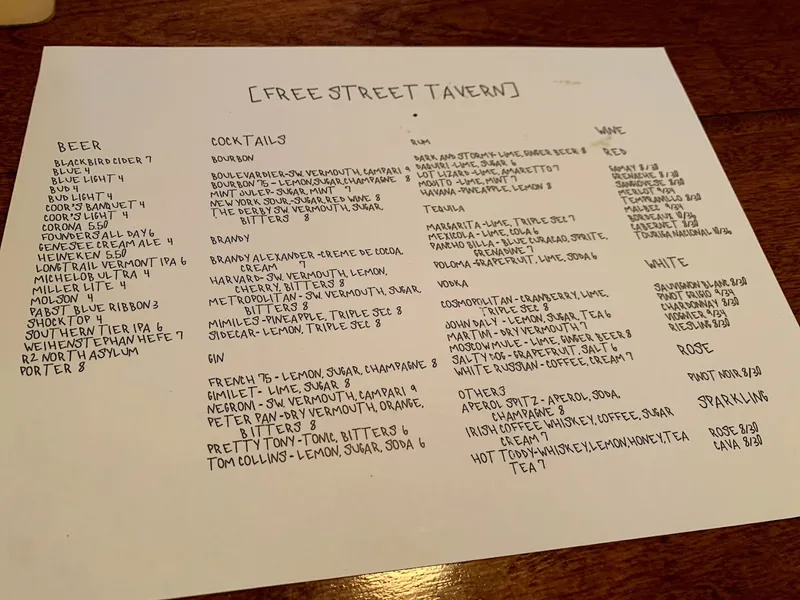 [FREE STREET TAVERN]
BEER
BLACKBIRD CIDER 7
BLUE 4
BLUE LIGHT 4
BUD 4
BUD LIGHT 4
COOR'S BANQUET 4
COOR'S LIGHT 4
CORONA 5.50
FOUNDERS ALL DAY 6
GENESEE CREAM ALE 4
HEINEKEN 5.50
LONGTRAIL VERMONT IPA 6
MICHELOB ULTRA 4
MILLER LITE 4
MOLSON 4
PABST BLUE RIBBON 3
SHOCKTOP 4
SOUTHERN TIER IPA 6
WEIHENSTEPHAN HEFE 7
R2 NORTH ASYLUM
PORTER 8
COCKTAILS
BOURBON
BOULEVARDIER-SW. VERMOUTH, CAMPARI 9
BOURBON 75 - LEMON, SUGAR, CHAMPAGNE 8
MINT JULEP-SUGAR, MINT 7
NEW YORK SOUR-SUGAR, RED WINE 8
THE DERBY SW. VERMOUTH, SUGAR,
BITTERS 8
BRANDY
BRANDY ALEXANDER-CREME DE COCOA,
CREAM 7
HARVARD-SW. VERMOUTH, LEMON,
CHERRY, BITTERS 8
METROPOLITAN - SW. VERMOUTH, SUGAR,
BITTERS 8
MIMILES-PINEAPPLE, TRIPLE SEC 8
SIDECAR-LEMON, TRIPLE SEC 8
GIN
FRENCH 75 - LEMON, SUGAR, CHAMPAGNE 8
GIMILET- LIME, SUGAR 8
NEGRONI - SW. VERMOUTH, CAMPARI 9
PETER PAN-DRY VERMOUTH, ORANGE,
BITTERS 8
PRETTY TONY-TONIC, BITTERS 6
TOM COLLINS - LEMON, SUGAR, SODA 6
RUM
DARK AND STORMY-LIME, GINGER BEER 8
DAQUIRI-LIME, SUGAR 6
LOT LIZARD-LIME, AMARETTO 7
MOJITO-LIME, MINT 7
HAVANA-PINEAPPLE, LEMON 8
TEQUILA
MARGARITA-LIME, TRIPLE SEC 7
MEXICOLA-LIME, COLA 6
PANCHO BILLA-BLUE CURACAO, SPRITE,
GRENADINE 7
POLOMA-GRAPEFRUIT, LIME, SODA 6
VODKA
COSMOPOLITAN-CRANBERRY, LIME,
TRIPLE SEC 8
JOHN DALY-LEMON, SUGAR, TEA 6
MARTINI-DRY VERMOUTH 7
MOSCOW MULE-LIME, GINGER BEER 8
SALTY DOG-GRAPEFRUIT, SALT 6
WHITE RUSSIAN-COFFEE, CREAM 7
OTHERS
APEROL SPITZ-APEROL, SODA,
CHAMPAGNE 8
IRISH COFFEE WHISKEY, COFFEE, SUGAR
CREAM 7
HOT TODDY-WHISKEY, LEMON, HONEY, TEA
TEA 7
WINE
RED
GAMAY 8/30
GRENACHE 8/30
SANGIOVESE 8/30
MERLOT 9/34
TEMPRANILLO 8/30
MALBEC 9/34
BORDEAUX 10/36
CABERNET 8/30
TOURIGA NACIONAL 10/36
WHITE
SAUVIGNON BLANC 8/30
PINOT GRIGIO 9/34
CHARDONNAY 8/30
VIOGNIER 9/34
RIESLING 8/30
ROSE
PINOT NOIR 8/30
SPARKLING
ROSE 8/30
CAVA 8/30